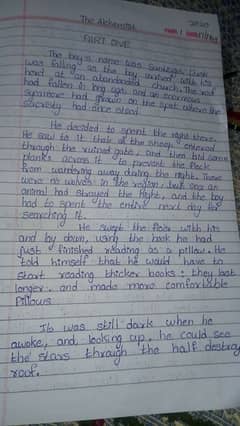 The Alchemist
PART ONE
The boy's name was Santiago. Dusk
was falling as the boy arrived with his
herd at an abandoned church. The roof
had fallen in long ago, and an enormous
sycamore had grown on the spot where the
sacristy had once stood.
He decided to spent the night there.
He saw to it that all the sheep entered
through the ruined gate, and then laid some
planks across it to prevent the flock
from wandering away during the night. There
were no wolves in the region, but once an
animal had strayed the night, and the boy
had to spent the entire next day for
searching it.
He swept the floor with his
and by down, using the book he had
just finished reading as a pillow. He
told himself that he would have to
start reading thicker books: they last
longer. and made more comfortable
Pillows
It was still dark when he
awoke, and, looking up, he could see
the stars through the half destroy
roof.